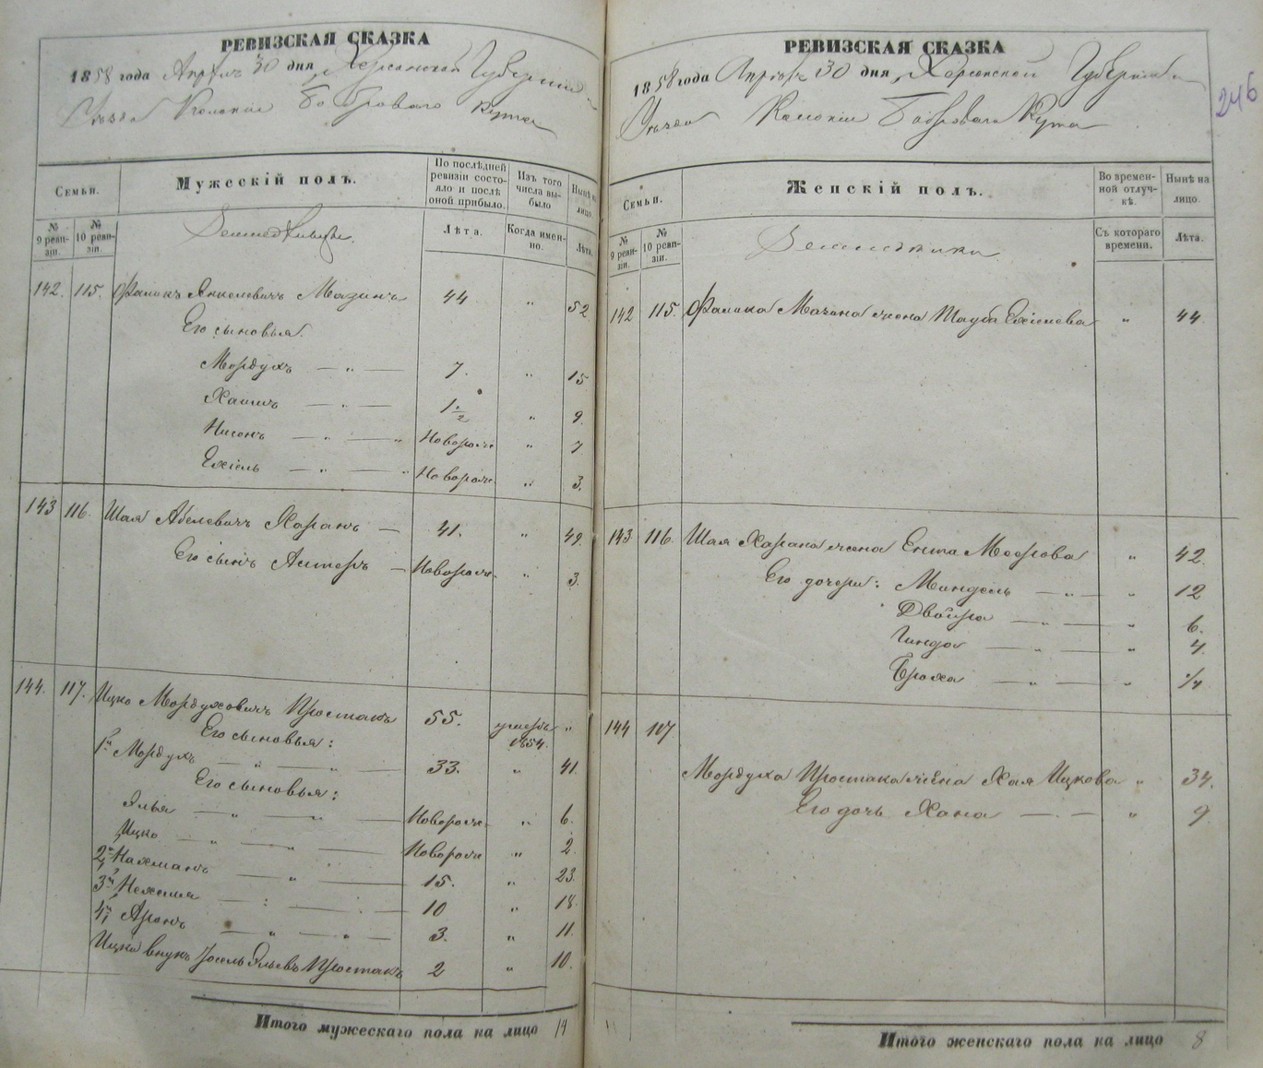 РЕВИЗСКАЯ СКАЗКА
1858 года Апреля 30 дня, Херсонской Губернии
Уезда Колонии Бобрового Кута
Семьи.
Мужескій полъ.
По послѣдней ревизіи состояло и послѣ оной прибыло.
Изъ того числа выбыло
Нынѣ на лицо.
№ 9 ревизіи.
№ 10 ревизіи.
Лѣта.
Когда именно.
Лѣта.
142. 115. Фаликъ Янкелевичъ Мазинъ 44 " 52
Его сыновья.
Мордухъ — " — 7. " 15
Хаимъ — " — 1 1/2 " 9.
Нисонъ — " — " Новорож " 7
Ехiель — " — " Новорож " 3.
143 116. Шая Абелевичъ Харакъ — 41. " 49.
Его сынъ Астеръ — Новорож. " 3.
144. 117. Ицко Мордуховичъ Простакъ 55. умеръ 1854. "
Его сыновья:
1й Мордухъ — " — " — 33. " 41.
Его сыновья:
Илья — " — " — Новорож " 6.
Ицко — " — " — Новорож " 2
2й Нахманъ — " — 15. " 23
3й Нехемия — " — 10 " 18.
4й Аронъ — " — " — 3. " 11.
Ицка внукъ Иосель Ильевъ Простакъ 2 " 10.
Итого мужескаго пола на лицо 14
РЕВИЗСКАЯ СКАЗКА
1858 года Апреля 30 дня, Херсонской Губернии
Уезда Колонии Бобрового Кута
246
Семьи.
Женскій полъ.
Во временной отлучкѣ.
Нынѣ на лицо.
№ 9 ревизіи.
№ 10 ревизіи.
Съ котораго времени.
Лѣта.
142 115. Фалика Мазина жена Тауба Ехiелева " 44.
143 116. Шая Харака жена Ента Меерова " 42.
Его дочери: Миндель — " — " 12
Двойра — " — " 6.
Гинда — " — " 4.
Броха — " — " 1/4
144 117
Мордуха Простака жена Хая Ицкова " 34.
Его дочь Хана — " — " 9.
Итого женскаго пола на лицо 8